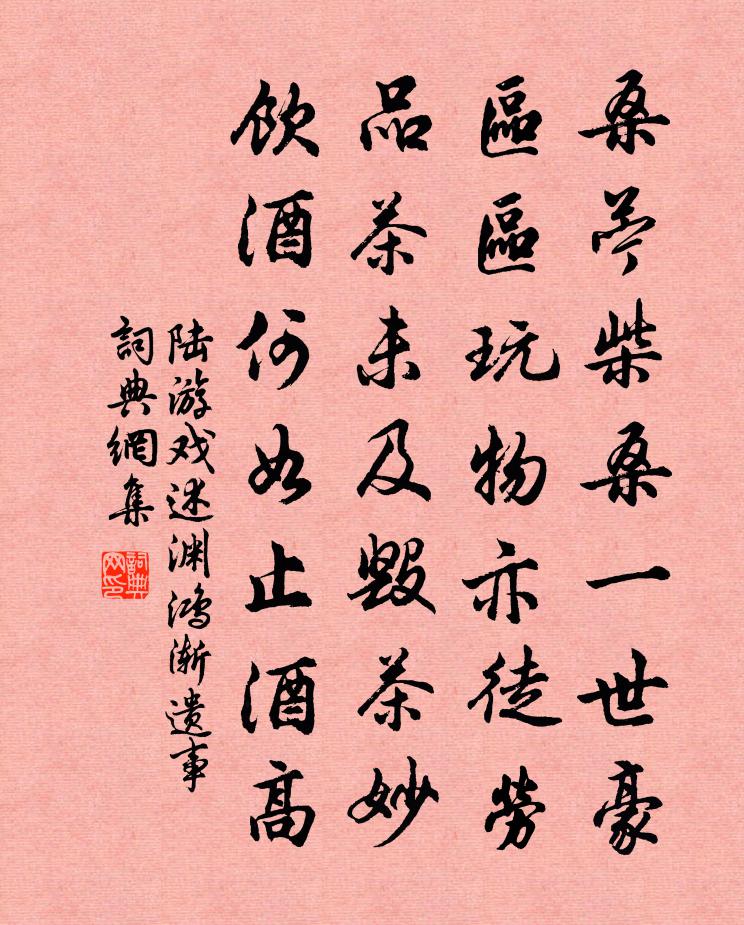 桑苎柴桑一世豪
區區玩物亦徒勞
品茶未及毀茶妙
飲酒何如止酒高
陆游戏述渊鸿渐遗事
詞典網集
詞典网印